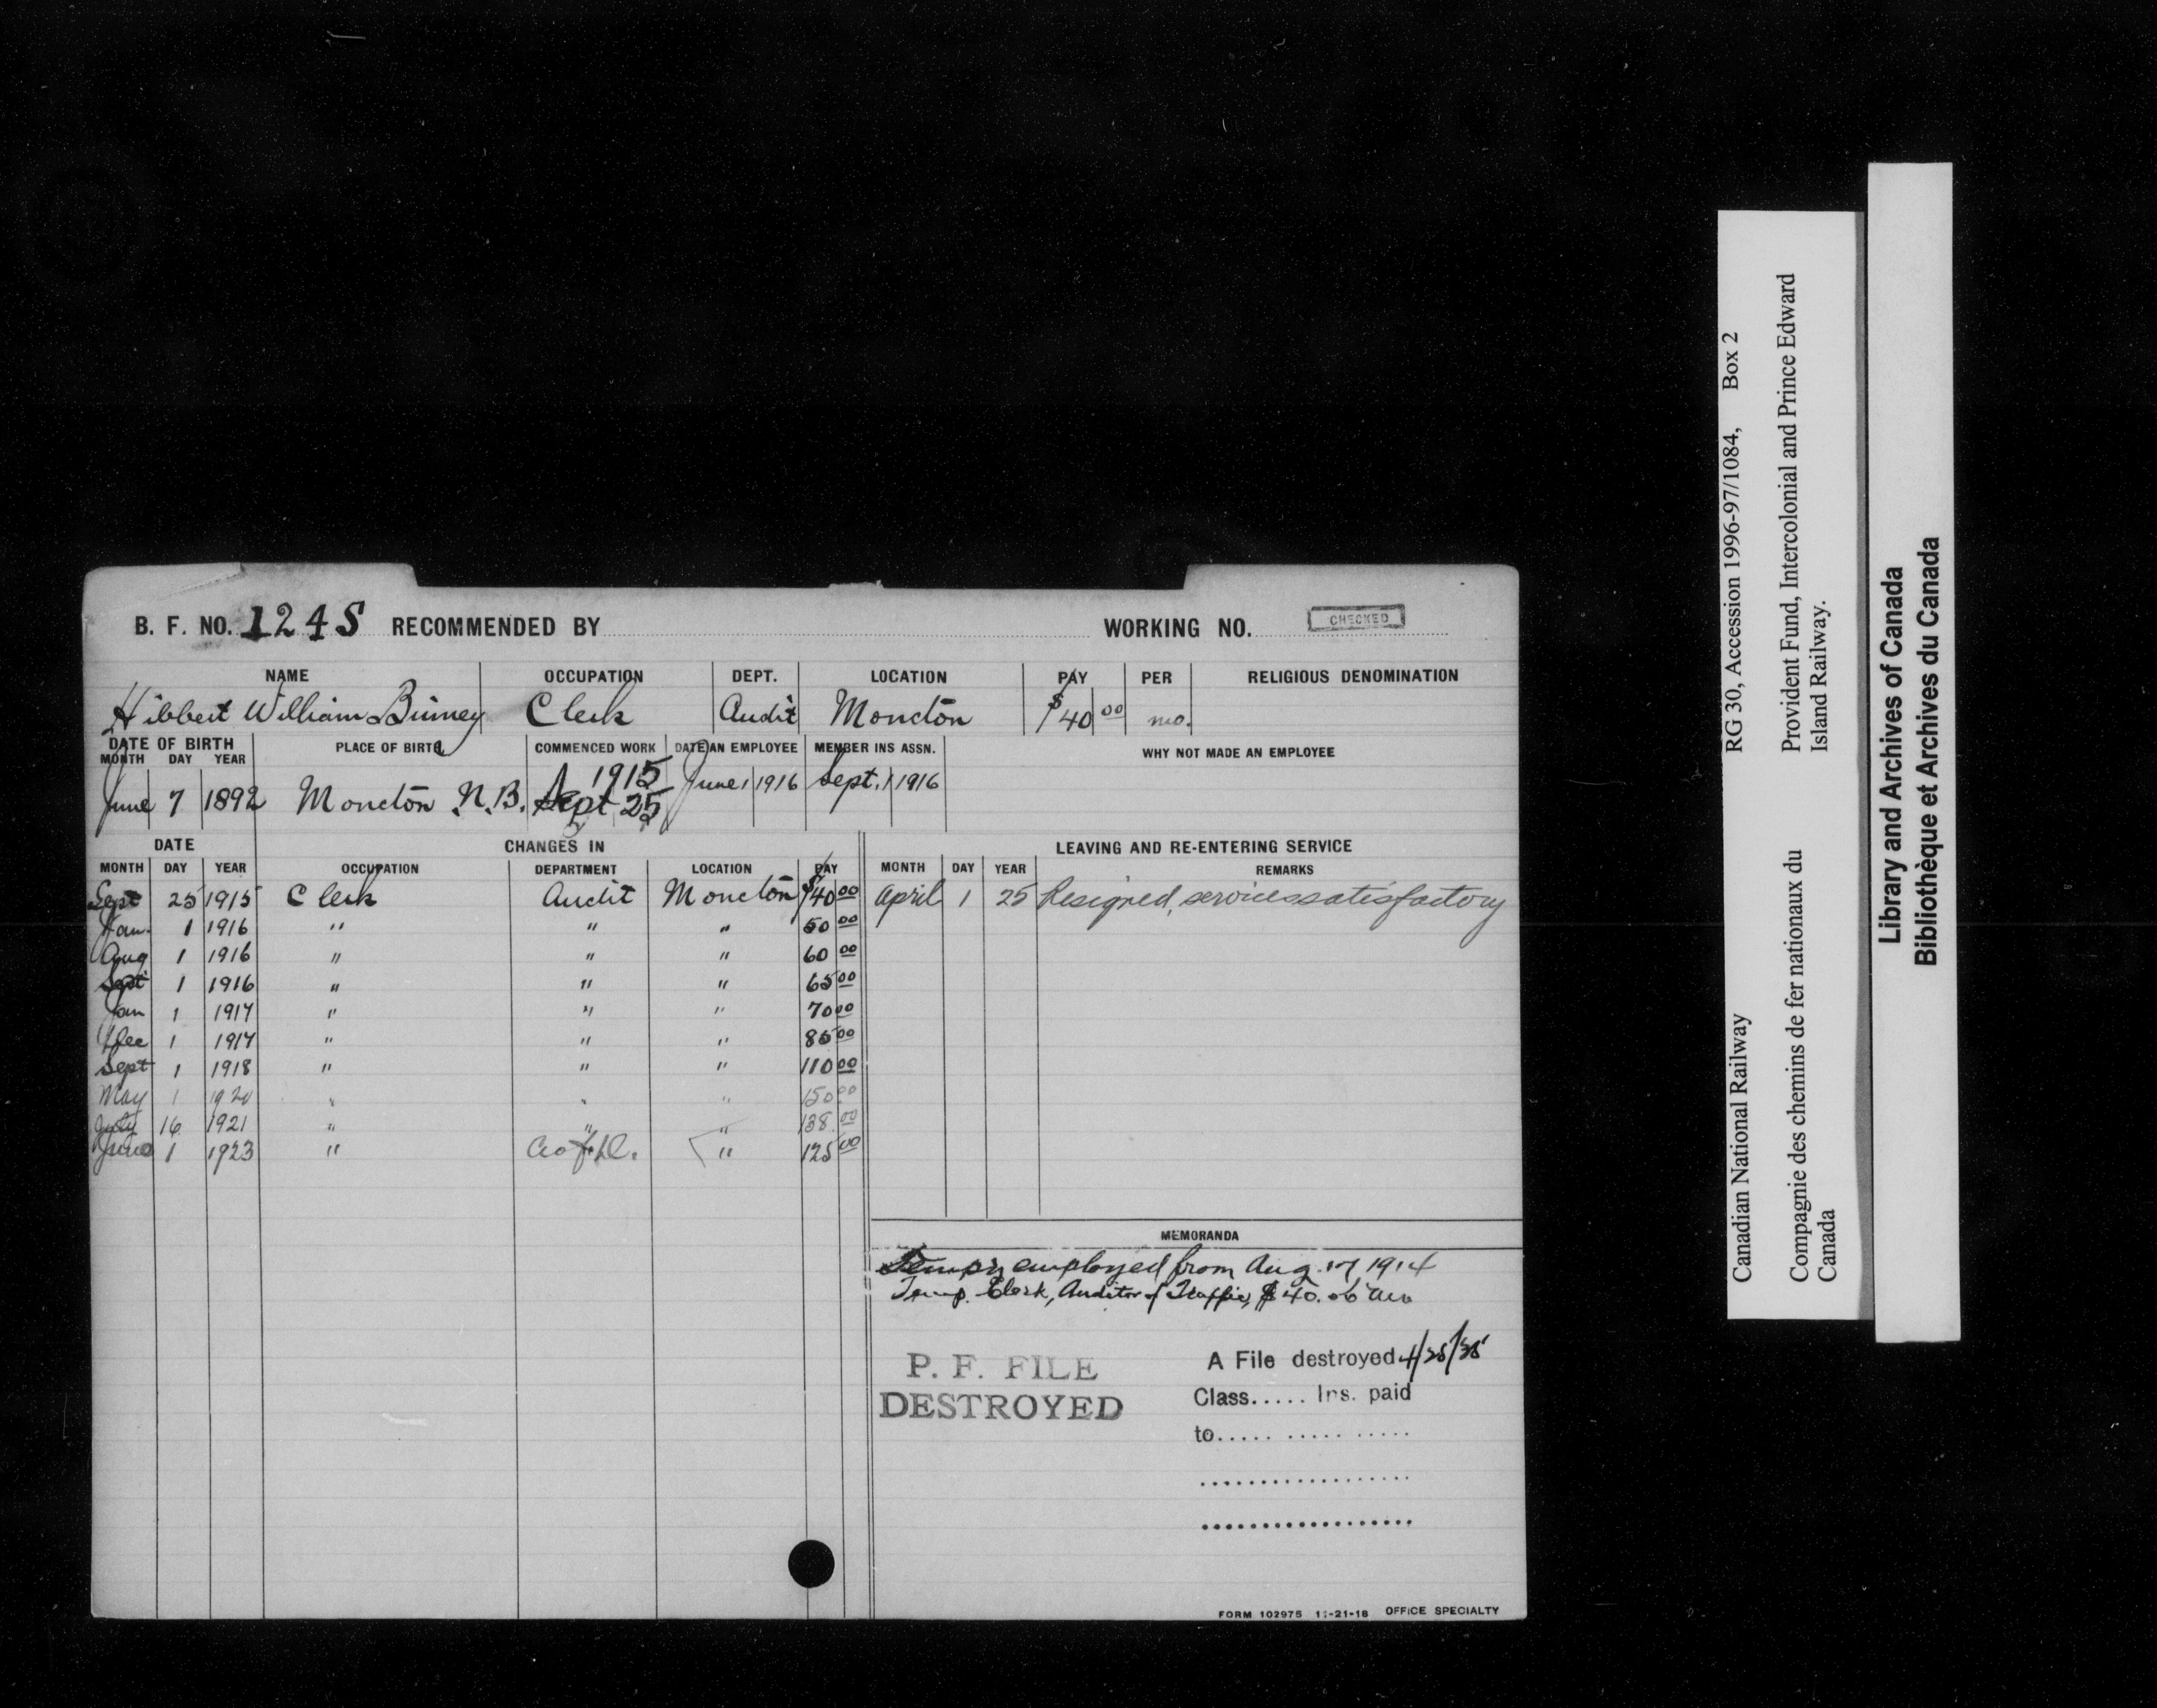 B. F. NO. 1245 RECOMMENDED BY WORKING NO. CHECKED
NAME OCCUPATION DEPT. LOCATION PAY PER RELIGIOUS DENOMINATION
Hibbert William Binney Clerk Audit Moncton $40 00 mo.
DATE OF BIRTH PLACE OF BIRTH COMMENCED WORK DATE AN EMPLOYEE MEMBER INS ASSN. WHY NOT MADE AN EMPLOYEE
MONTH DAY YEAR
1915
June 7 1892 Moncton N.B. Sept 25 June 1 1916 Sept. 1 1916
DATE CHANGES IN
MONTH DAY YEAR OCCUPATION DEPARTMENT LOCATION PAY
Sept 25 1915 Clerk Audit Moncton $40 00
Jan. 1 1916 " " " 50 00
Aug 1 1916 " " " 60 00
Sept 1 1916 " " " 65 00
Jan 1 1917 " " " 70 00
Dec 1 1917 " " " 85 00
Sept 1 1918 " " " 110 00
May 1 1920 " " " 150 00
July 16 1921 " " " 138 00
June 1 1923 " " 125 00
LEAVING AND RE-ENTERING SERVICE
MONTH DAY YEAR REMARKS
April 1 25 Resigned, services satisfactory
MEMORANDA
employed from Aug. 17, 1914
Temp. Clerk, Auditor of Traffic, $40.00
P. F. FILE
DESTROYED
A File destroyed 4/28/
Class..... Ins. paid
to..... ..... .....
FORM 102975 11-21-18 OFFICE SPECIALTY
Canadian National Railway RG 30, Accession 1996-97/1084, Box 2
Compagnie des chemins de fer nationaux du Canada
Provident Fund, Intercolonial and Prince Edward
Island Railway.
Library and Archives of Canada
Bibliothèque et Archives du Canada